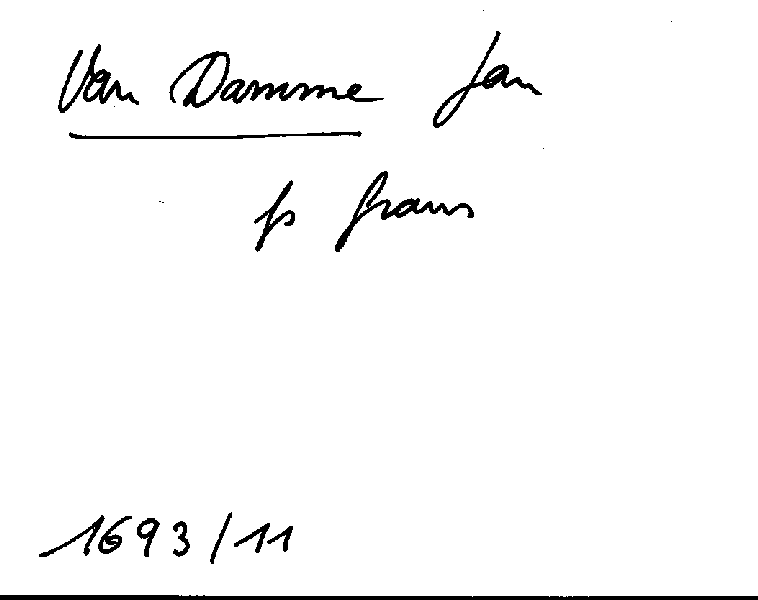 Van Damme Jan
fs frans
1693/11